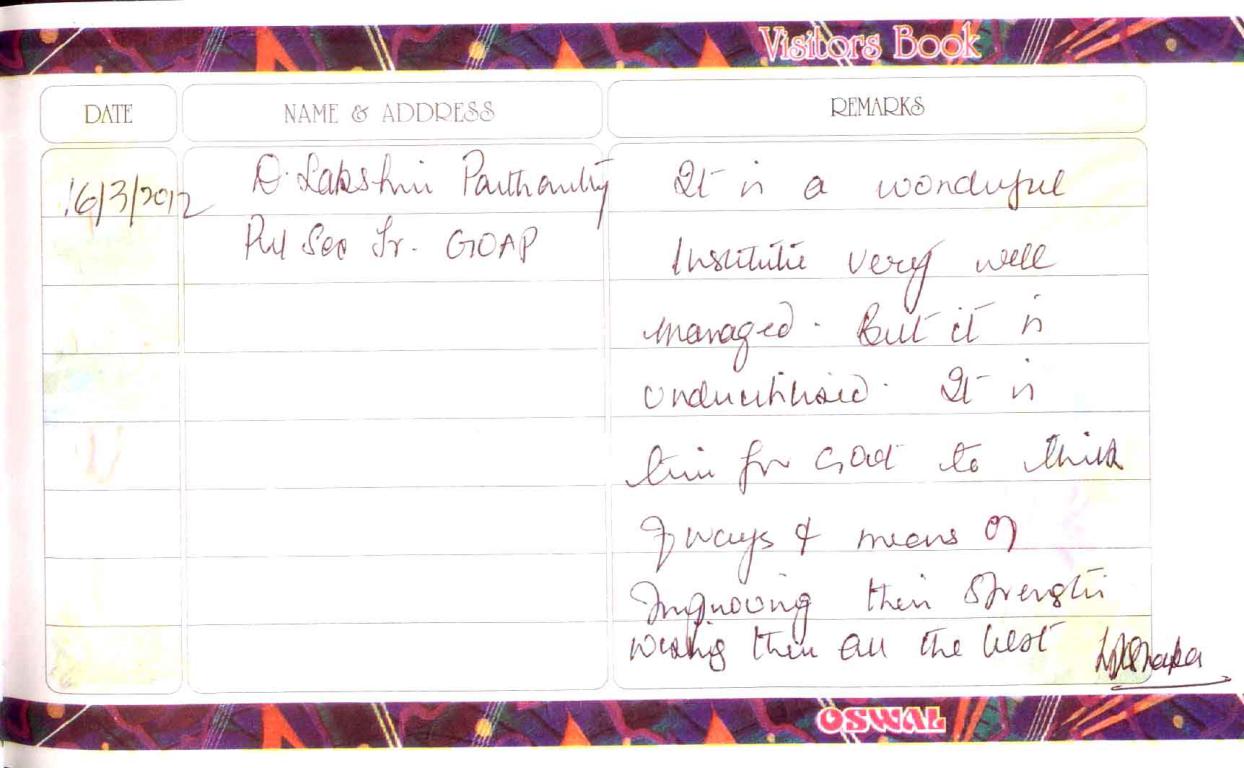 Visitors Book
DATE
NAME & ADDRESS
REMARKS
16/3/2012
D. Lakshmi Parthasarathy
Prl Sec Fr. GOAP
It is a wonderful
Institute very well
managed. But it is
underutilised. It is
time for Govt to think
of ways & means of
Improving their strength
wishing them all the best
OSWAL